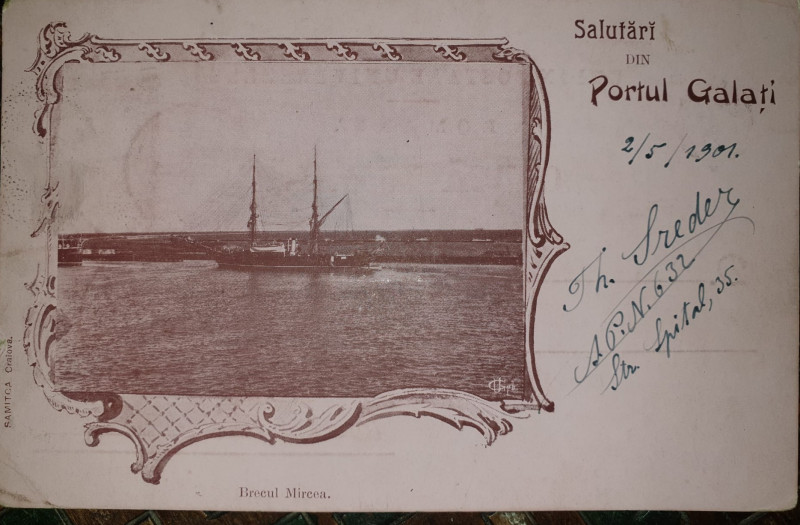 Salutări
DIN
Portul Galați
2/5/1901.
Th. Sreder
A.P.N. 632
Str. Spital, 35.
SAMITCA Craiova.
Brecul Mircea.